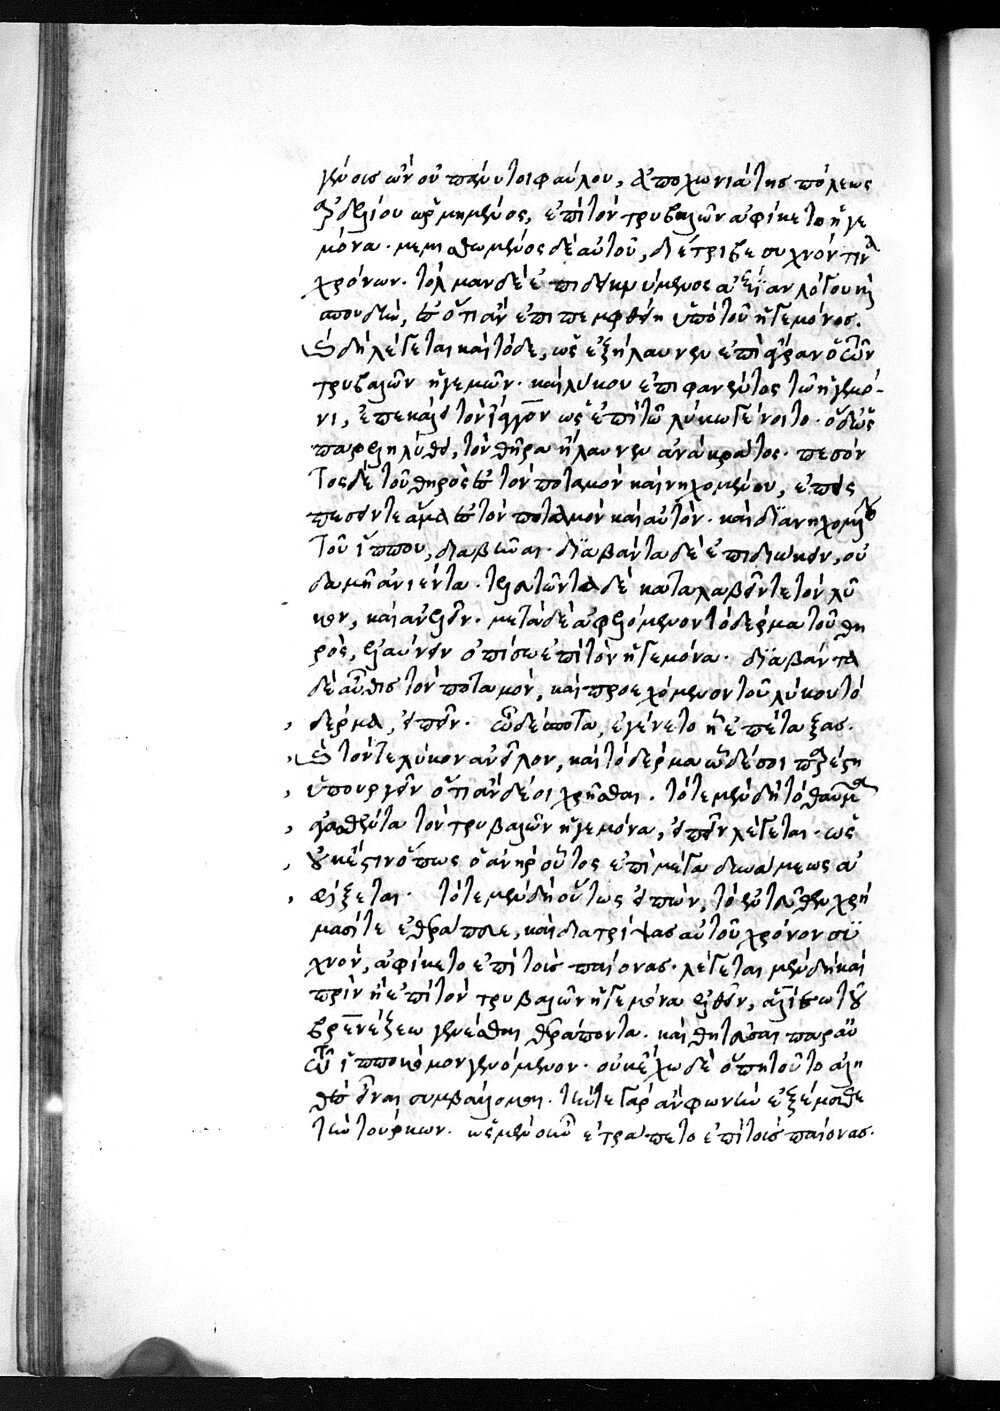 γένοις ὢν οὐ πάνυ τοι φαύλου, ἀπολωνιάτης πόλεως
ὁρμημένος, ἐπὶ τὸν τριβαλῶν ἀφίκετο ἡγε
μόνα. μεμισθωμένος δὲ αὐτοῦ, διέτριβε συχνόν τινα
χρόνον. τόλμαν δὲ ἐπιδεικνύμενος ἀξίαν λόγου καὶ
σπουδὴν, ἐς ὅτι ἂν ἐπιπεμφθείη ὑπὸ τοῦ ἡγεμόνος.
καὶ δὴ λέγεται καὶ τόδε, ὡς ἐξήλαυνεν ἐπὶ ἄγραν ὁ τῶν
τριβαλῶν ἡγεμών. καὶ λύκου ἐπιφανέντος τῶ ἡγεμό-
νι, ἐπεκάλει τὸν ἰάγγον ὡς ἐπὶ τῶ λύκω γένοιτο. ὁ δὲ ὡς
παρεληλύθει, τὸν θῆρα ἤλαυνεν ἀνὰ κράτος. πεσόν
τος δὲ τοῦ θηρὸς ἐς τὸν ποταμὸν καὶ νηχομένου, ἐπεισ
πεσεῖν τε ἅμα ἐς τὸν ποταμὸν καὶ αὐτόν. καὶ διανηχομένου
τοῦ ἵππου, διαβῶσαι. διαβάντα δὲ ἐπιδιώκειν, οὐ
δαμῆ ἀνιέντα. τελευτῶντα δὲ καταλαβεῖν τε τὸν λύ
κον, καὶ ἀνελεῖν. μετὰ δὲ ἀφελόμενον τὸ δέρμα τοῦ θη
ρὸς, ἐλαύνειν ὀπίσω ἐπὶ τὸν ἡγεμόνα. διαβάντα
δὲ αὖθις τὸν ποταμὸν, καὶ προεχόμενον τοῦ λύκου τὸ
δέρμα, εἰπεῖν. ὦ δέσποτα, ἐγένετο ἧ ἐπέταξας.
καὶ τόν τε λύκον ἀνεῖλον, καὶ τὸ δέρμα ὧδέ σοι πάρεστι
ὑπουργεῖν ὅτι ἂν δέοι χρῆσθαι. τότε μὲν δὴ τὸ θαῦμα
ἀγασθέντα τὸν τριβαλῶν ἡγεμόνα, εἰπεῖν λέγεται. ὡς
οὐκ ἔστιν ὅπως ὁ ἀνὴρ οὗτος ἐπὶ μέγα δυνάμεως ἀ
φίξεται. τότε μὲν δὴ οὕτως εἰπών, τὸ ἐντεῦθεν χρή
μασί τε ἐθεράπευε, καὶ διατρίψας αὐτοῦ χρόνον συ
χνόν, ἀφίκετο ἐπὶ τοὺς παίονας. λέγεται μὲν δὴ καὶ
πρὶν ἢ ἐπὶ τὸν τριβαλῶν ἡγεμόνα ἐλθεῖν, ἀλίεω τοῦ
βρενέζεω γενέσθαι θεράποντα. καὶ θητεῦσαι παρ' αὐ
τῶ ἱπποκόμον γενόμενον. οὐκ ἔχω δὲ ὅπη τοῦτο ἀλη
θὲς εἶναι συμβάλομαι. τήν τε γὰρ ἂν φωνὴν ἐξέμαθε
τὴν τούρκων. ὡς μὲν οὖν ἐτράπετο ἐπὶ τοὺς παίονας.